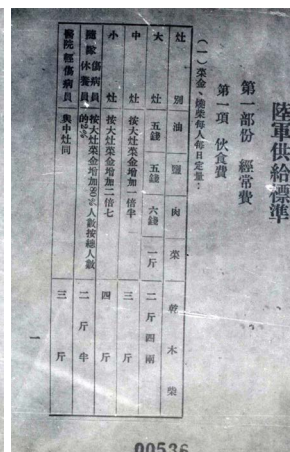 陸軍供給標準
第一部份 經常費
第一項 伙食費
(一)菜金、燒柴每人每日定量:
灶別 油 鹽 肉 菜 乾木柴
大灶 五錢 五錢 六錢 一斤 二斤四兩
中灶 按大灶菜金增加一倍半 三斤
小灶 按大灶菜金增加二倍七 四斤
傷病員 按大灶菜金增加 人數按總人數
休養員 的 二斤半
醫院輕傷病員 與中灶同 三斤
一
00536